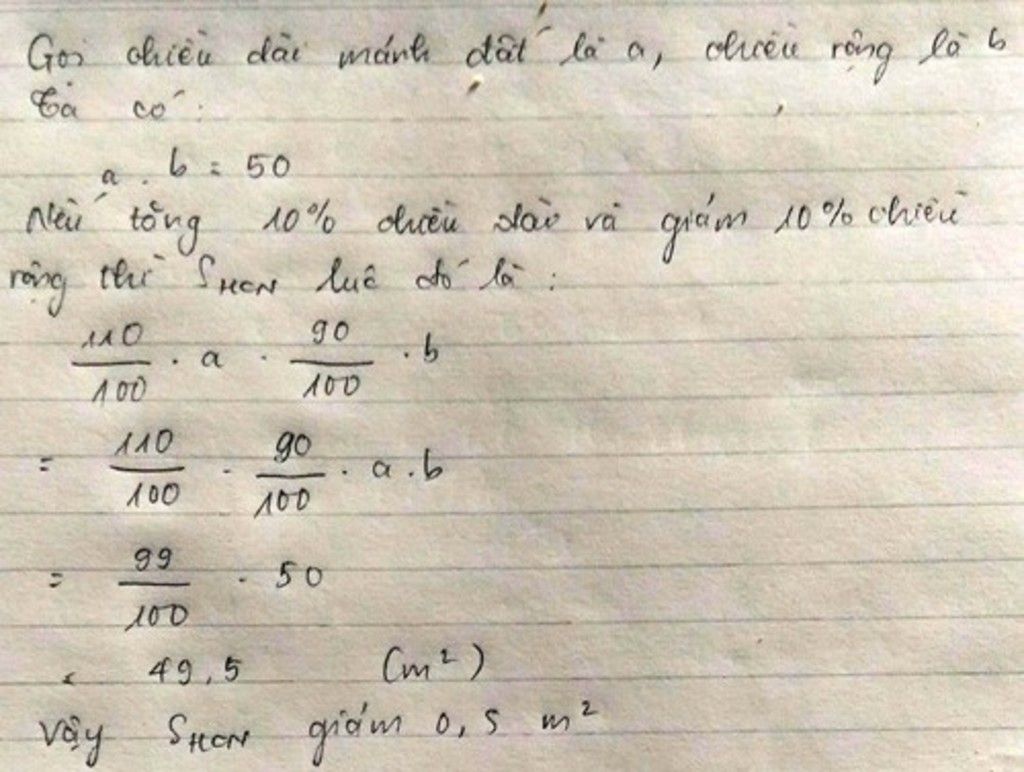 Gọi chiều dài mảnh đất là a, chiều rộng là b
Ta có:
a . b = 50
Nếu tăng 10% chiều dài và giảm 10% chiều
rộng thì SHCN lúc đó là :
110/100 . a . 90/100 . b
= 110/100 . 90/100 . a . b
= 99/100 . 50
= 49,5 (m²)
Vậy SHCN giảm 0,5 m²